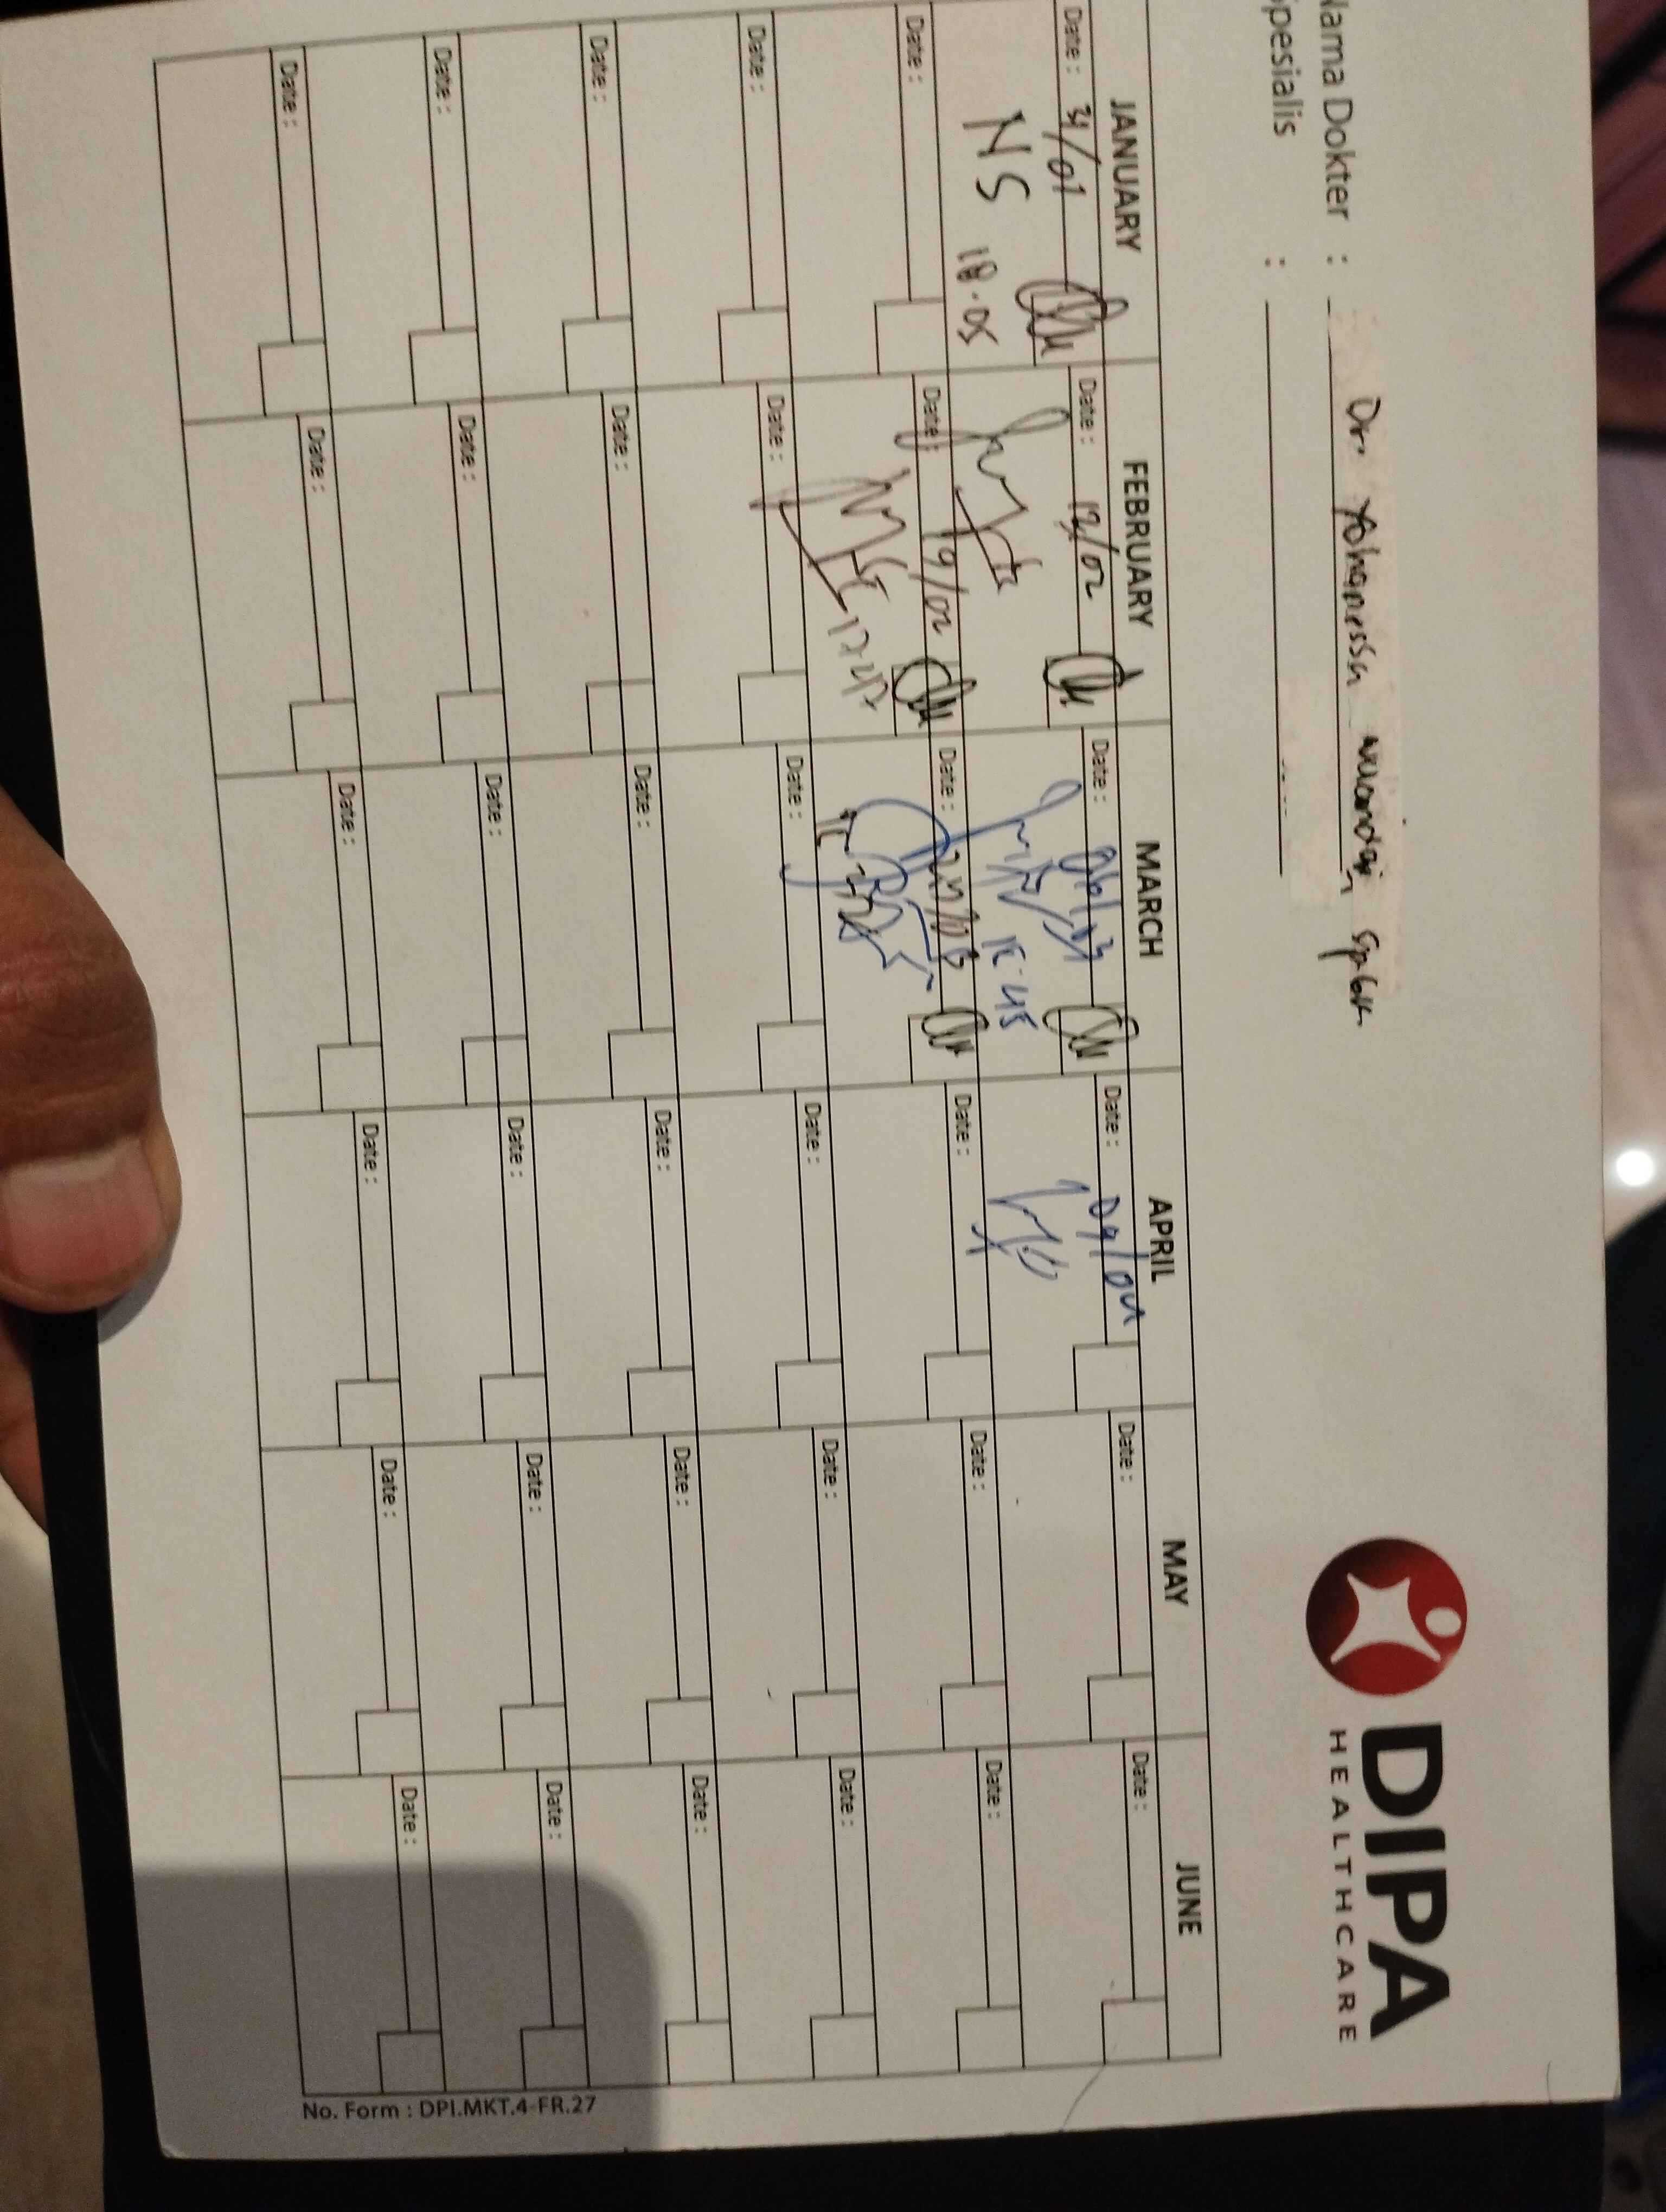 DIPA
HEALTHCARE
Nama Dokter : Dr. Yohanessa Wulandari, Sp.GK.
Spesialis :
JANUARY FEBRUARY MARCH APRIL MAY JUNE
Date: 31/01 Date: 12/02 Date: 06/03 Date: 04/04 Date: Date:
NS
18.05 15.45
Date: Date: 19/02 Date: Date: Date: Date:
Date: Date: Date: Date: Date: Date:
Date: Date: Date: Date: Date: Date:
Date: Date: Date: Date: Date: Date:
Date: Date: Date: Date: Date: Date:
No. Form : DPI.MKT.4-FR.27